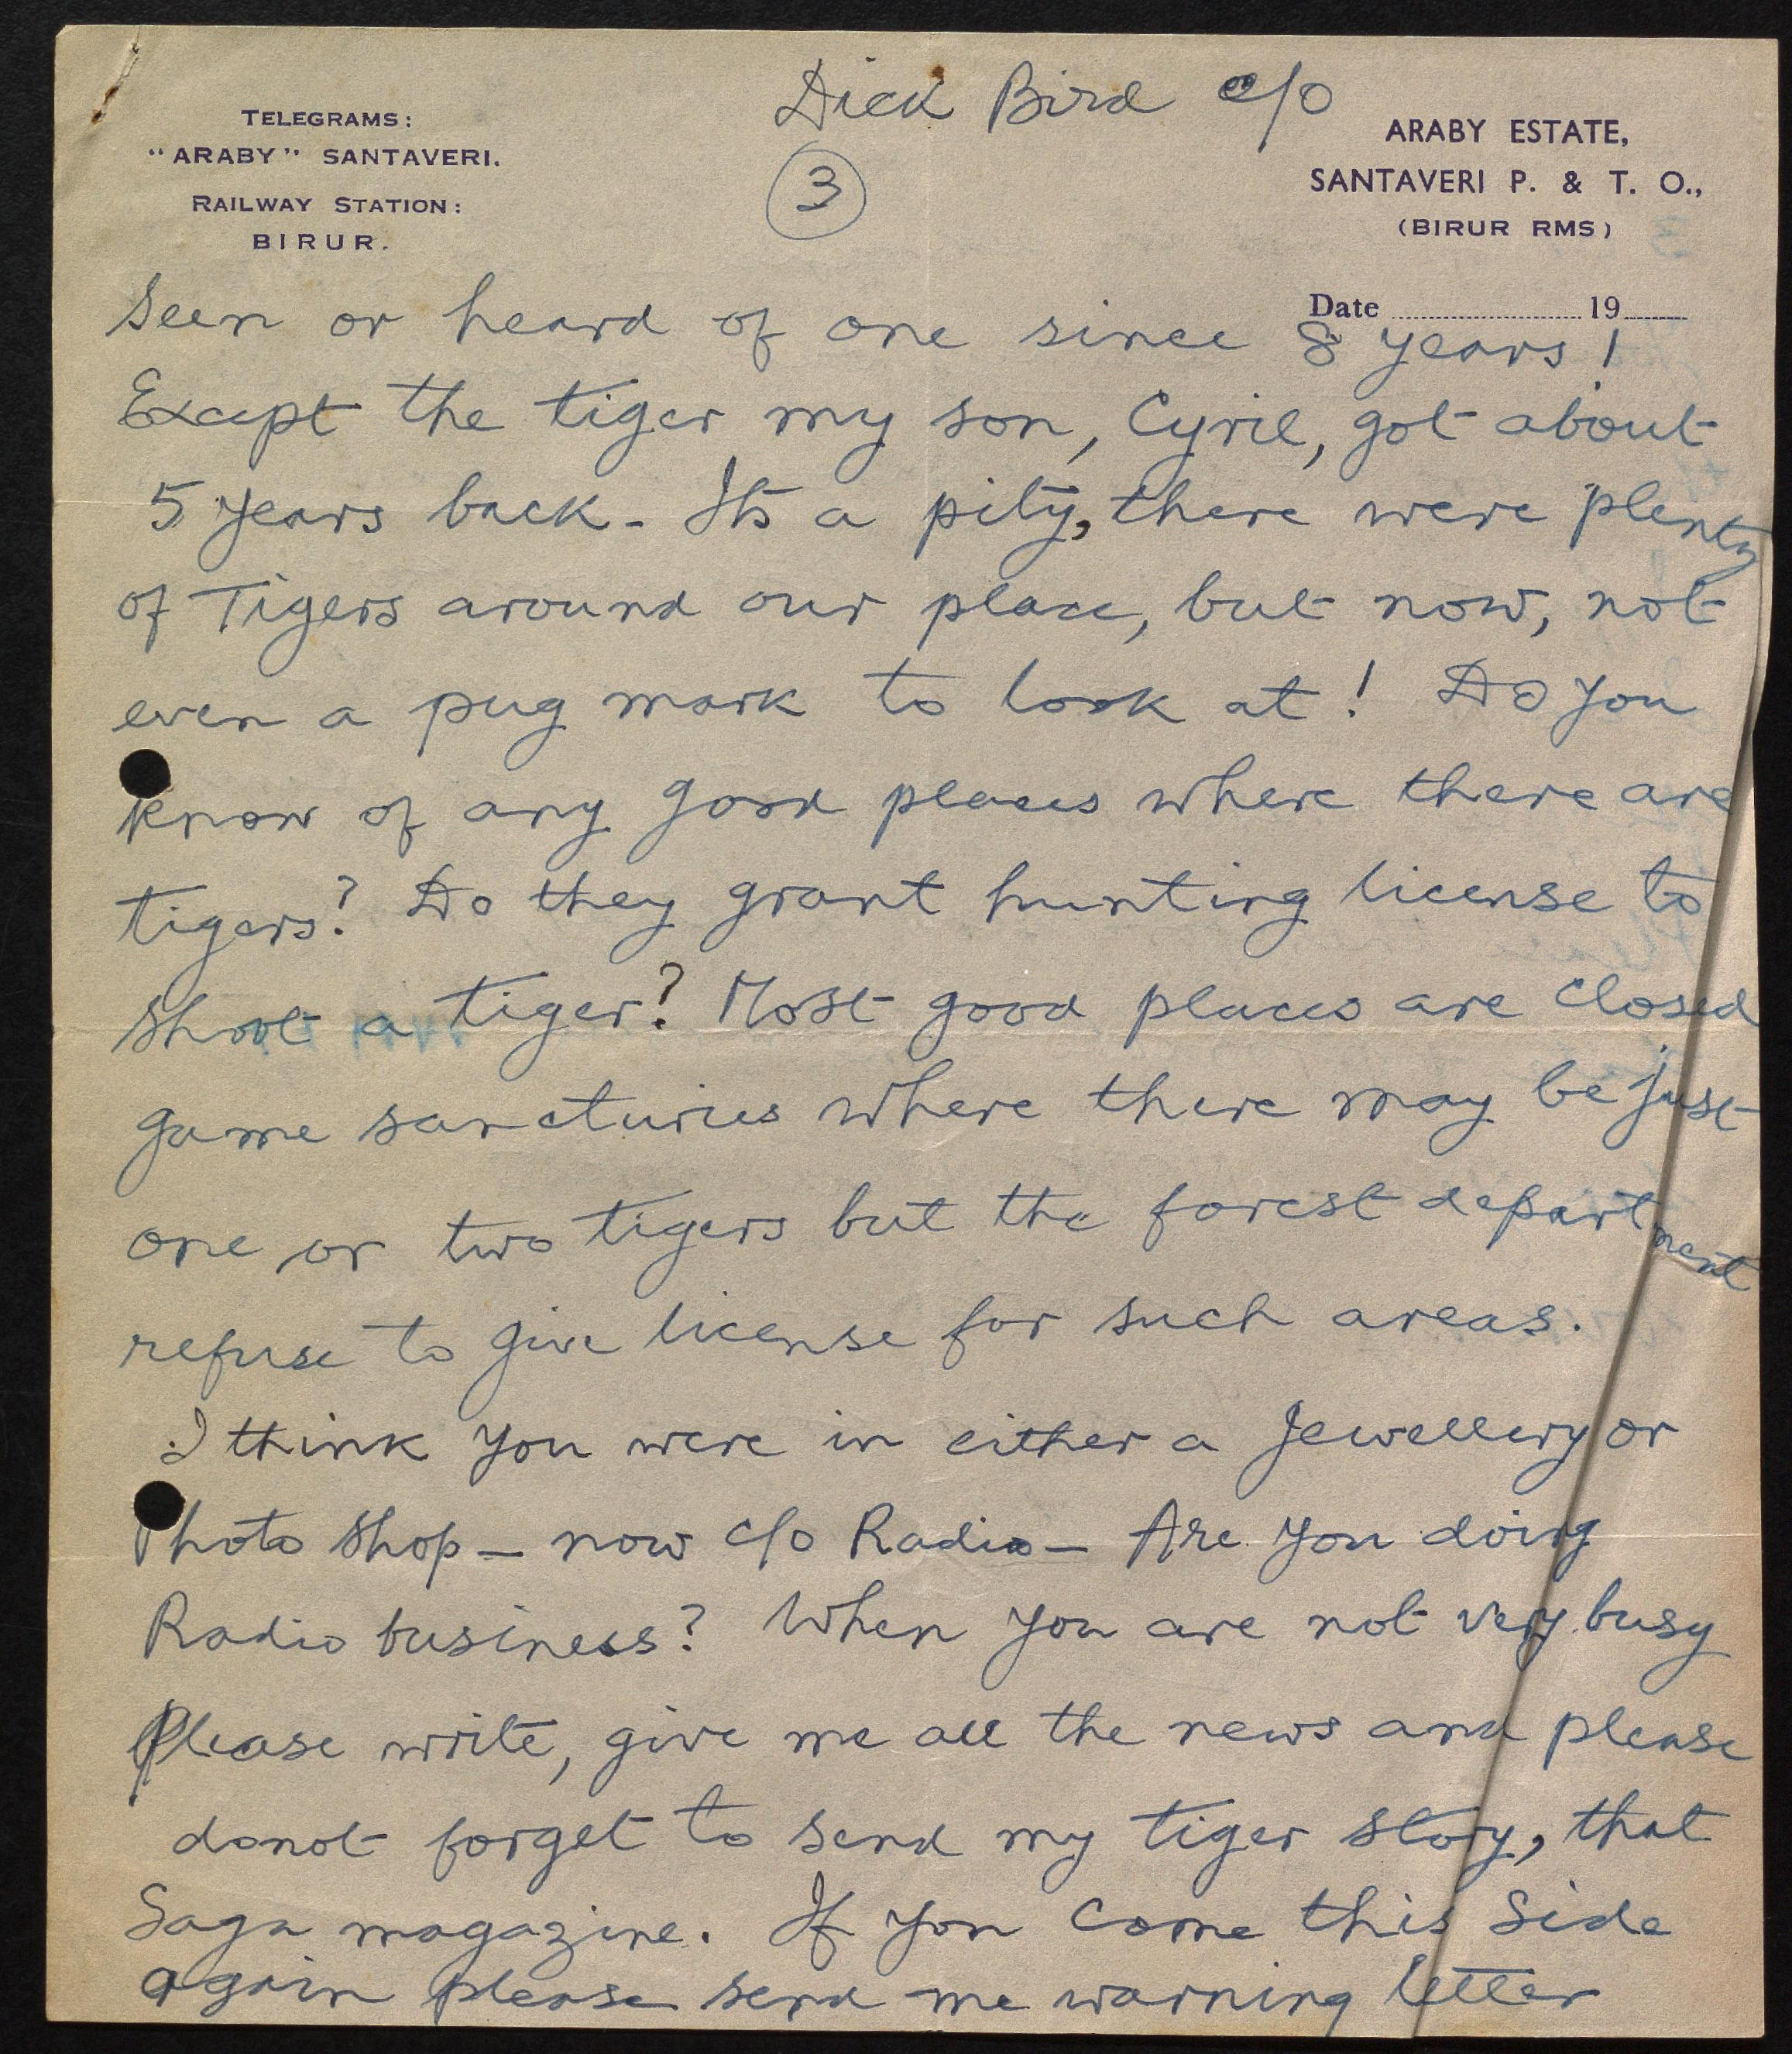 Dick Bird c/o
TELEGRAMS:
"ARABY" SANTAVERI.
RAILWAY STATION:
BIRUR.
3
ARABY ESTATE,
SANTAVERI P. & T. O.,
(BIRUR RMS)
Date ............ 19......
seen or heard of one since 8 years!
Except the tiger my son, Cyril, got about
5 years back - Its a pity, there were plenty
of Tigers around our place, but now, not
even a pug mark to look at! Do you
know of any good places where there are
tigers? Do they grant hunting license to
shoot a tiger? Most good places are closed
game sancturies where there may be just
one or two tigers but the forest department
refuse to give license for such areas.
I think you were in either a Jewellery or
Photo shop - now c/o Radio - Are you doing
Radio business? When you are not very busy
Please write, give me all the news and please
donot forget to send my tiger story, that
Saga magazine. If you come this side
again please send me warning letter